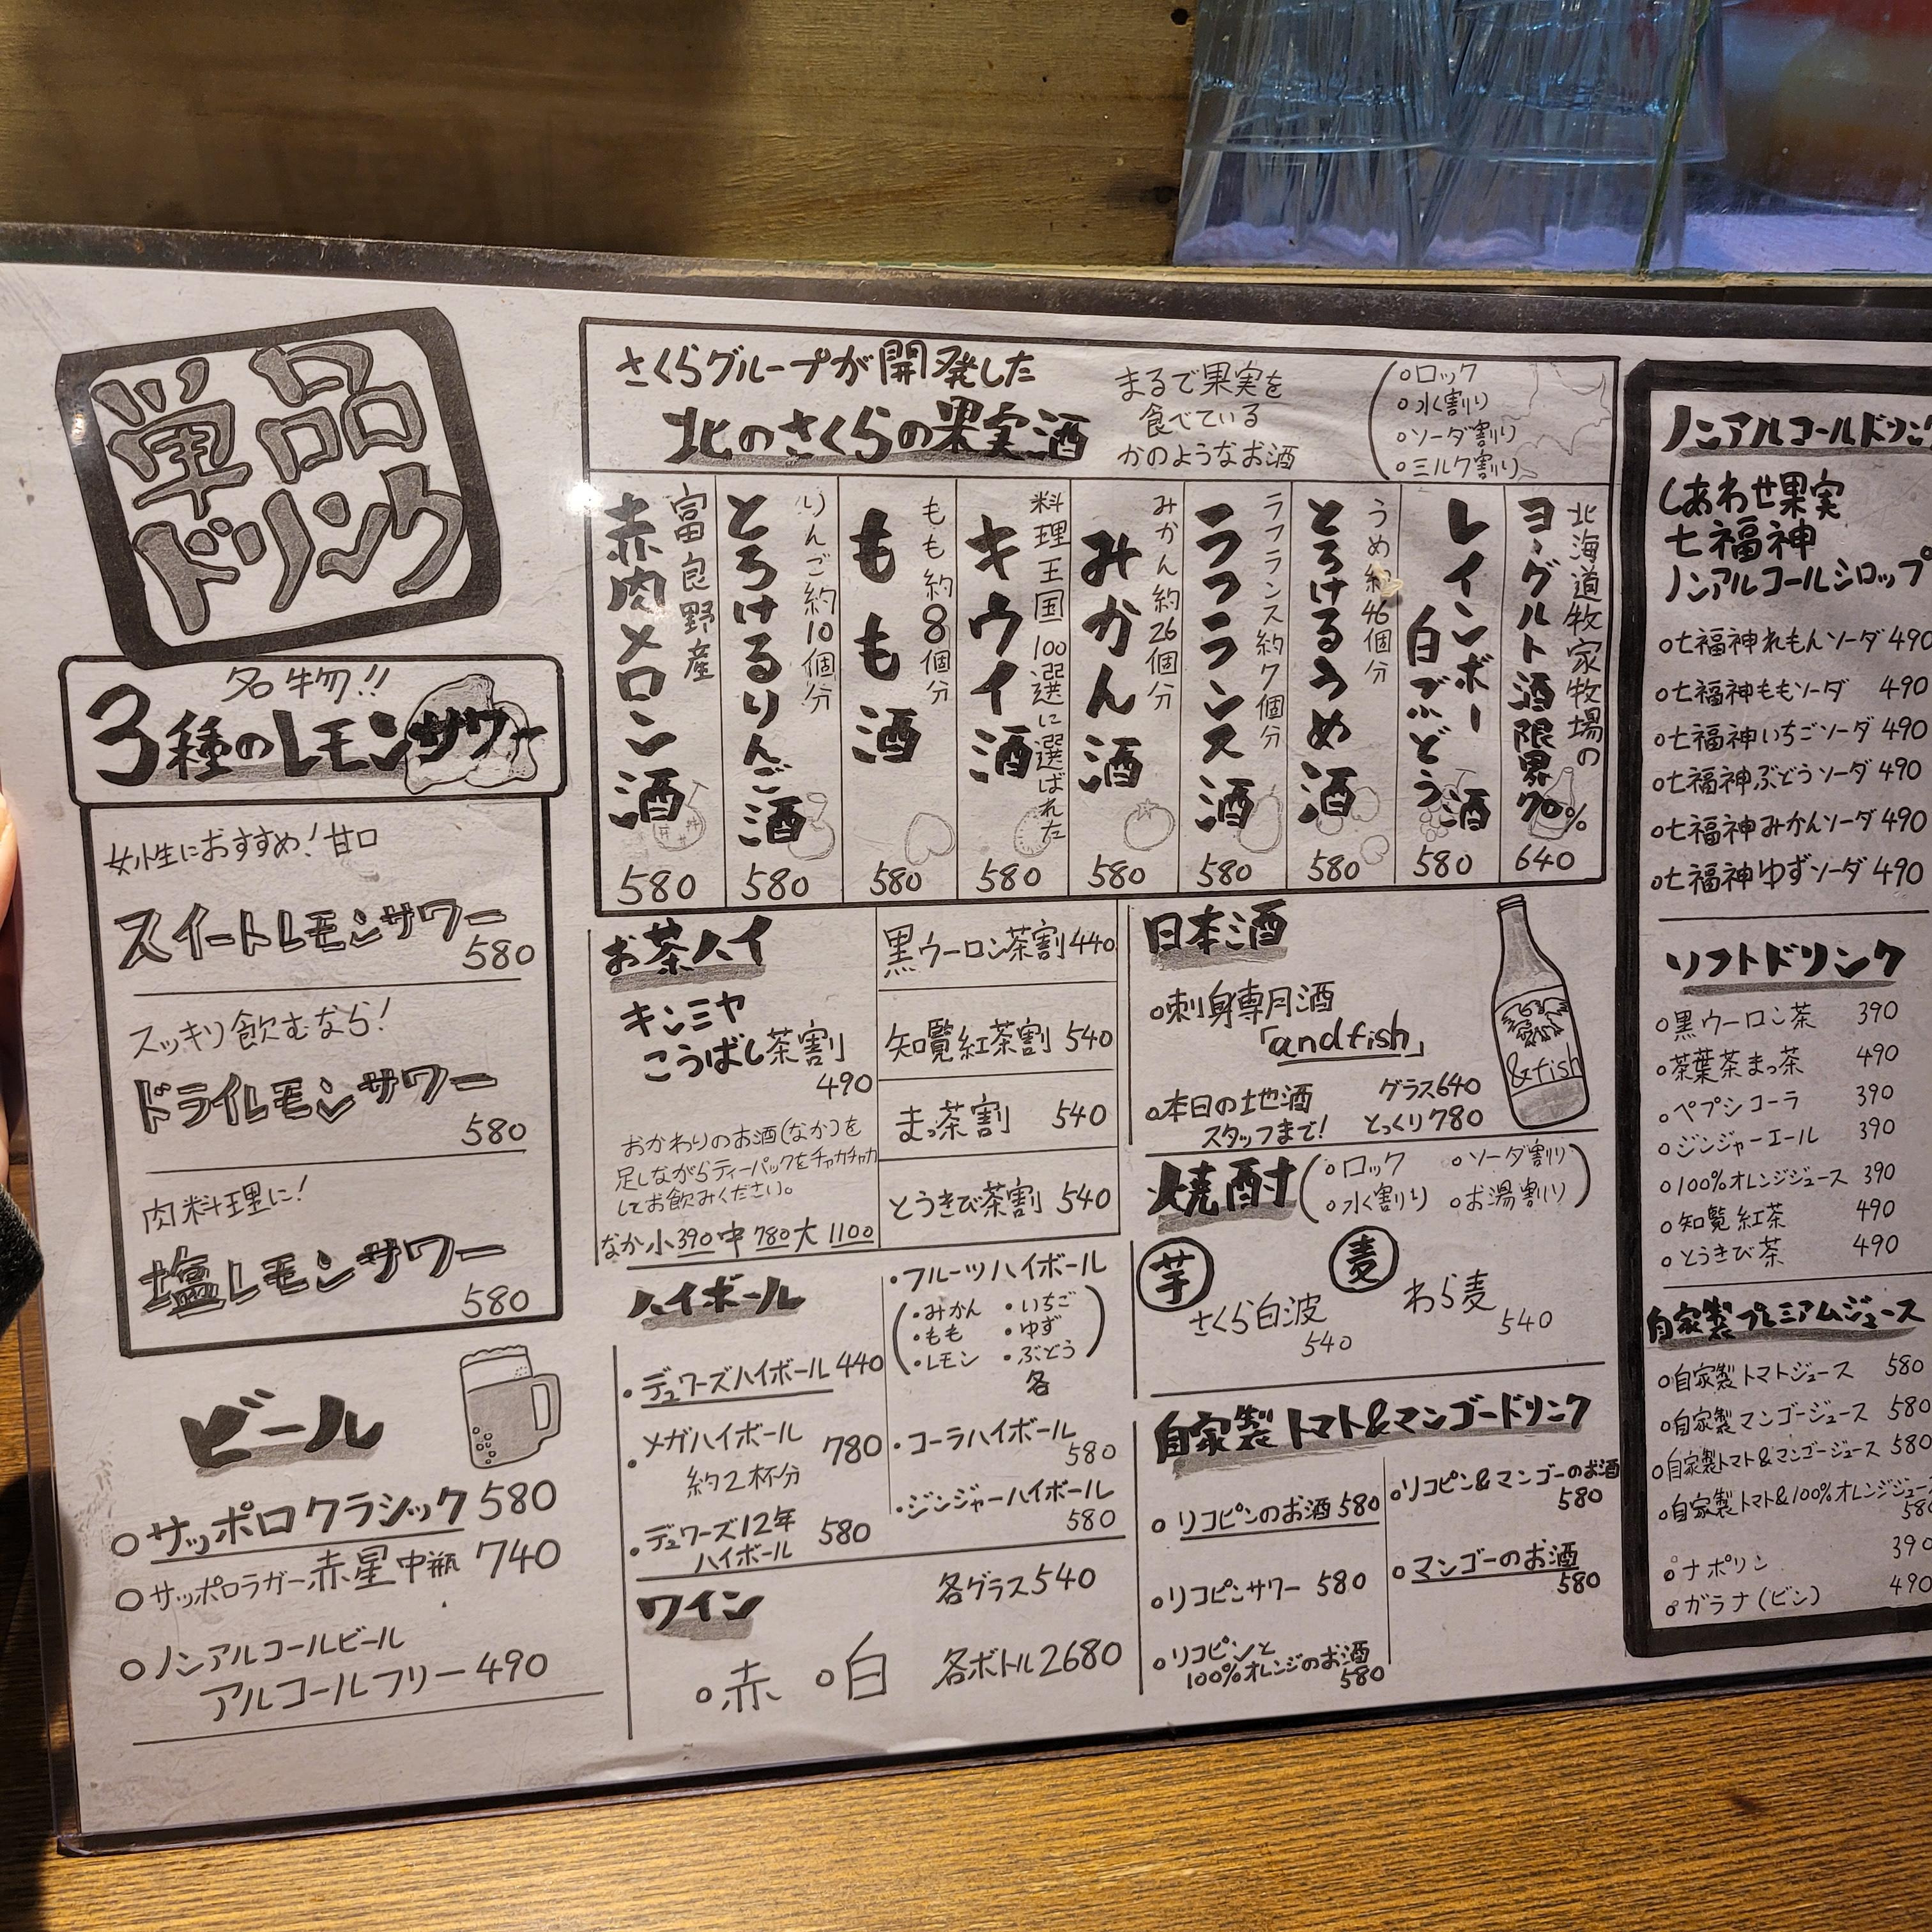 単品
ドリンク
名物!!
3種のレモンサワー
女性におすすめ!甘口
スイートレモンサワー
580
スッキリ飲むなら!
ドライレモンサワー
580
肉料理に!
塩レモンサワー
580
ビール
○サッポロクラシック 580
○サッポロラガー赤星中瓶 740
○ノンアルコールビール
アルコールフリー 490
さくらグループが開発した
北のさくらの果実酒
まるで果実を
食べている
かのようなお酒
○ロック
○水割り
○ソーダ割り
○ミルク割り
富良野産
赤肉メロン酒
580
りんご約10個分
とろけるりんご酒
580
もも約8個分
もも酒
580
料理王国100選に選ばれた
キウイ酒
580
みかん約26個分
みかん酒
580
ラフランス約7個分
ラフランス酒
580
うめ約46個分
とろけるうめ酒
580
レインボー
白ぶどう酒
580
北海道牧家牧場の
ヨーグルト酒限界70%
640
お茶ハイ
キンミヤ
こうばし茶割
490
おかわりのお酒(なか)を
足しながらティーパックをチャカチャカ
してお飲みください。
なか小390中780大1100
黒ウーロン茶割 440
知覧紅茶割 540
まっ茶割 540
とうきび茶割 540
ハイボール
・デュワーズハイボール 440
・メガハイボール 780
約2杯分
・デュワーズ12年
ハイボール 580
・フルーツハイボール
(・みかん ・いちご
・もも ・ゆず
・レモン ・ぶどう)
各
・コーラハイボール
580
・ジンジャーハイボール
580
ワイン
各グラス540
○赤 ○白 各ボトル2680
日本酒
○刺身専用酒
「andfish」
&fish
○本日の地酒
スタッフまで!
グラス640
とっくり780
焼酎(○ロック ○ソーダ割り
○水割り ○お湯割り)
芋
さくら白波
540
麦
わら麦
540
自家製トマト&マンゴードリンク
○リコピンのお酒 580
○リコピンサワー 580
○リコピンと
100%オレンジのお酒
580
○リコピン&マンゴーのお酒
580
○マンゴーのお酒
580
ノンアルコールドリンク
しあわせ果実
七福神
ノンアルコールシロップ
○七福神れもんソーダ 490
○七福神ももソーダ 490
○七福神いちごソーダ 490
○七福神ぶどうソーダ 490
○七福神みかんソーダ 490
○七福神ゆずソーダ 490
ソフトドリンク
○黒ウーロン茶 390
○茶葉茶まっ茶 490
○ペプシコーラ 390
○ジンジャーエール 390
○100%オレンジジュース 390
○知覧紅茶 490
○とうきび茶 490
自家製プレミアムジュース
○自家製トマトジュース 580
○自家製マンゴージュース 580
○自家製トマト&マンゴージュース 580
○自家製トマト&100%オレンジジュース
580
○ナポリン 390
○ガラナ(ビン) 490